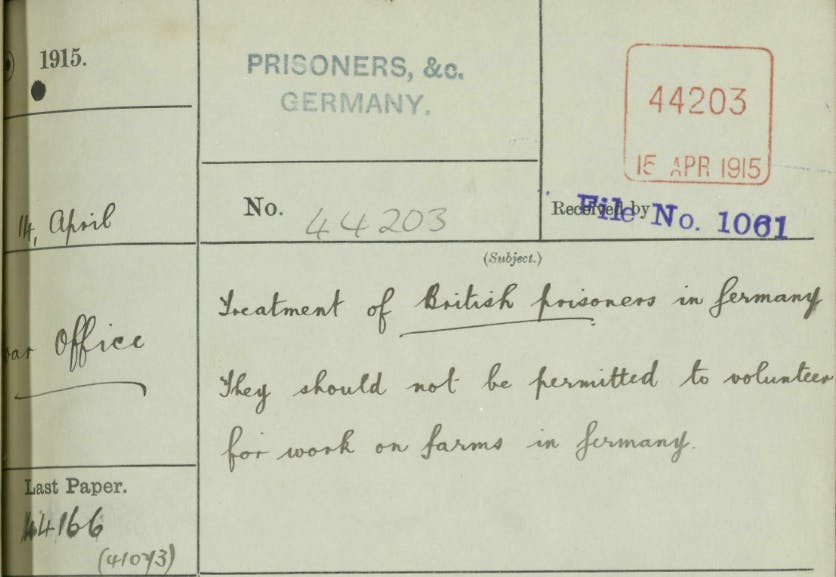 1915.
PRISONERS, &c.
GERMANY.
44203
15 APR 1915
14, April
No. 44203
Received by
File No. 1061
(Subject.)
Treatment of British prisoners in Germany
They should not be permitted to volunteer
for work on farms in Germany.
War Office
Last Paper.
44166
(41073)